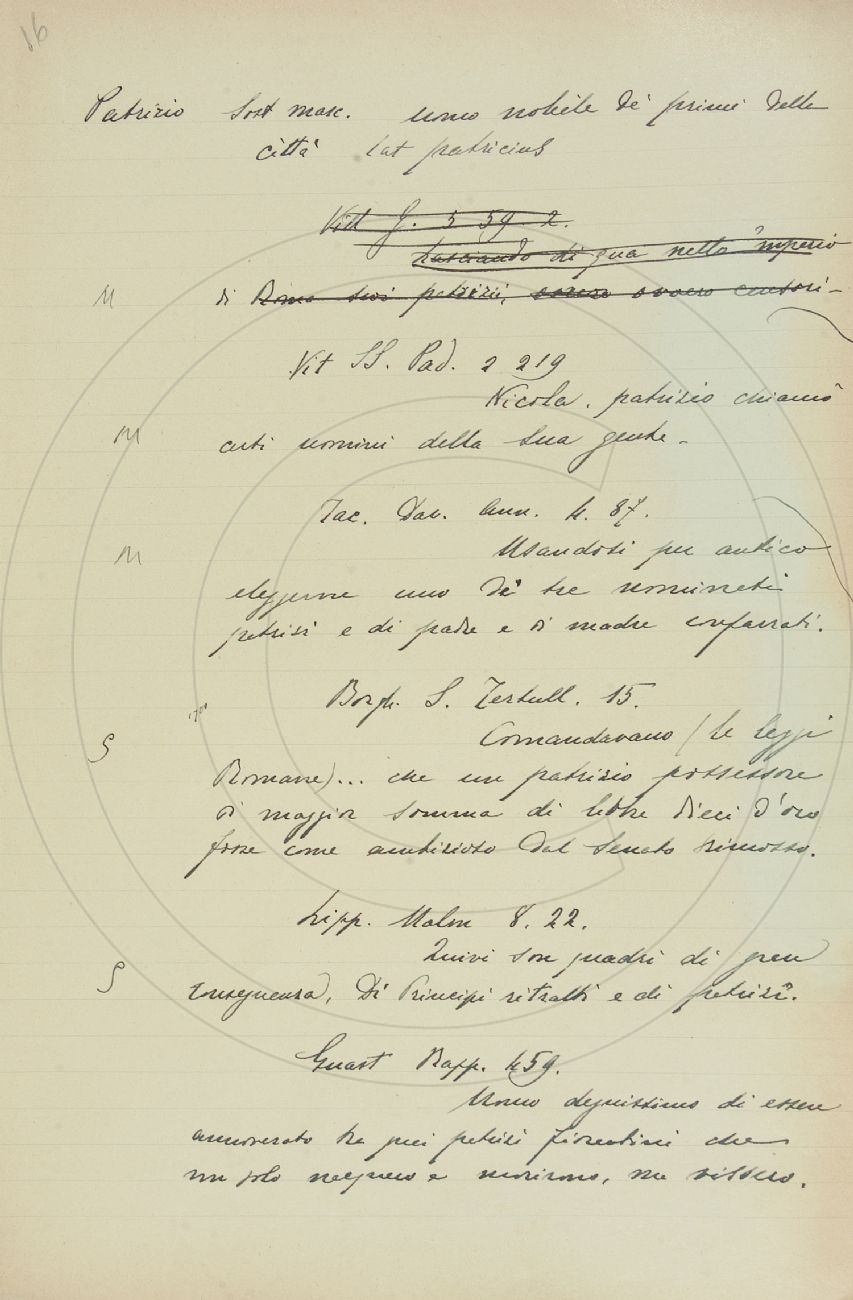 16
Patrizio Sost masc. uomo nobile de' primi della
città lat patricius
Vill G. 5 59 2.
Lasciando di qua nello 'mperio
M di Roma suoi patrizii, ovvero censori-
Vit SS. Pad. 2 219
Nicola, patrizio chiamò
M certi uomini della sua gente.
Tac. Dav. Ann. 4. 87.
M Usandosi per antico
eleggerne uno de' tre nominati
patrizi e di padre e di madre confarrati.
Borgh. S. Tertull. 15.
Comandavano (le leggi
S Romane)... che un patrizio possessore
di maggior somma di libbre dieci d'oro
fosse come ambizioso dal Senato rimosso.
Lipp. Malm 8. 22.
Quivi son quadri di gran
S conseguenza, Di Principi ritratti e di patrizi.
Guast Rapp. 459.
Uomo degnissimo di essere
annoverato tra quei patrizi fiorentini che
non solo nacquero e morirono, ma vissero.